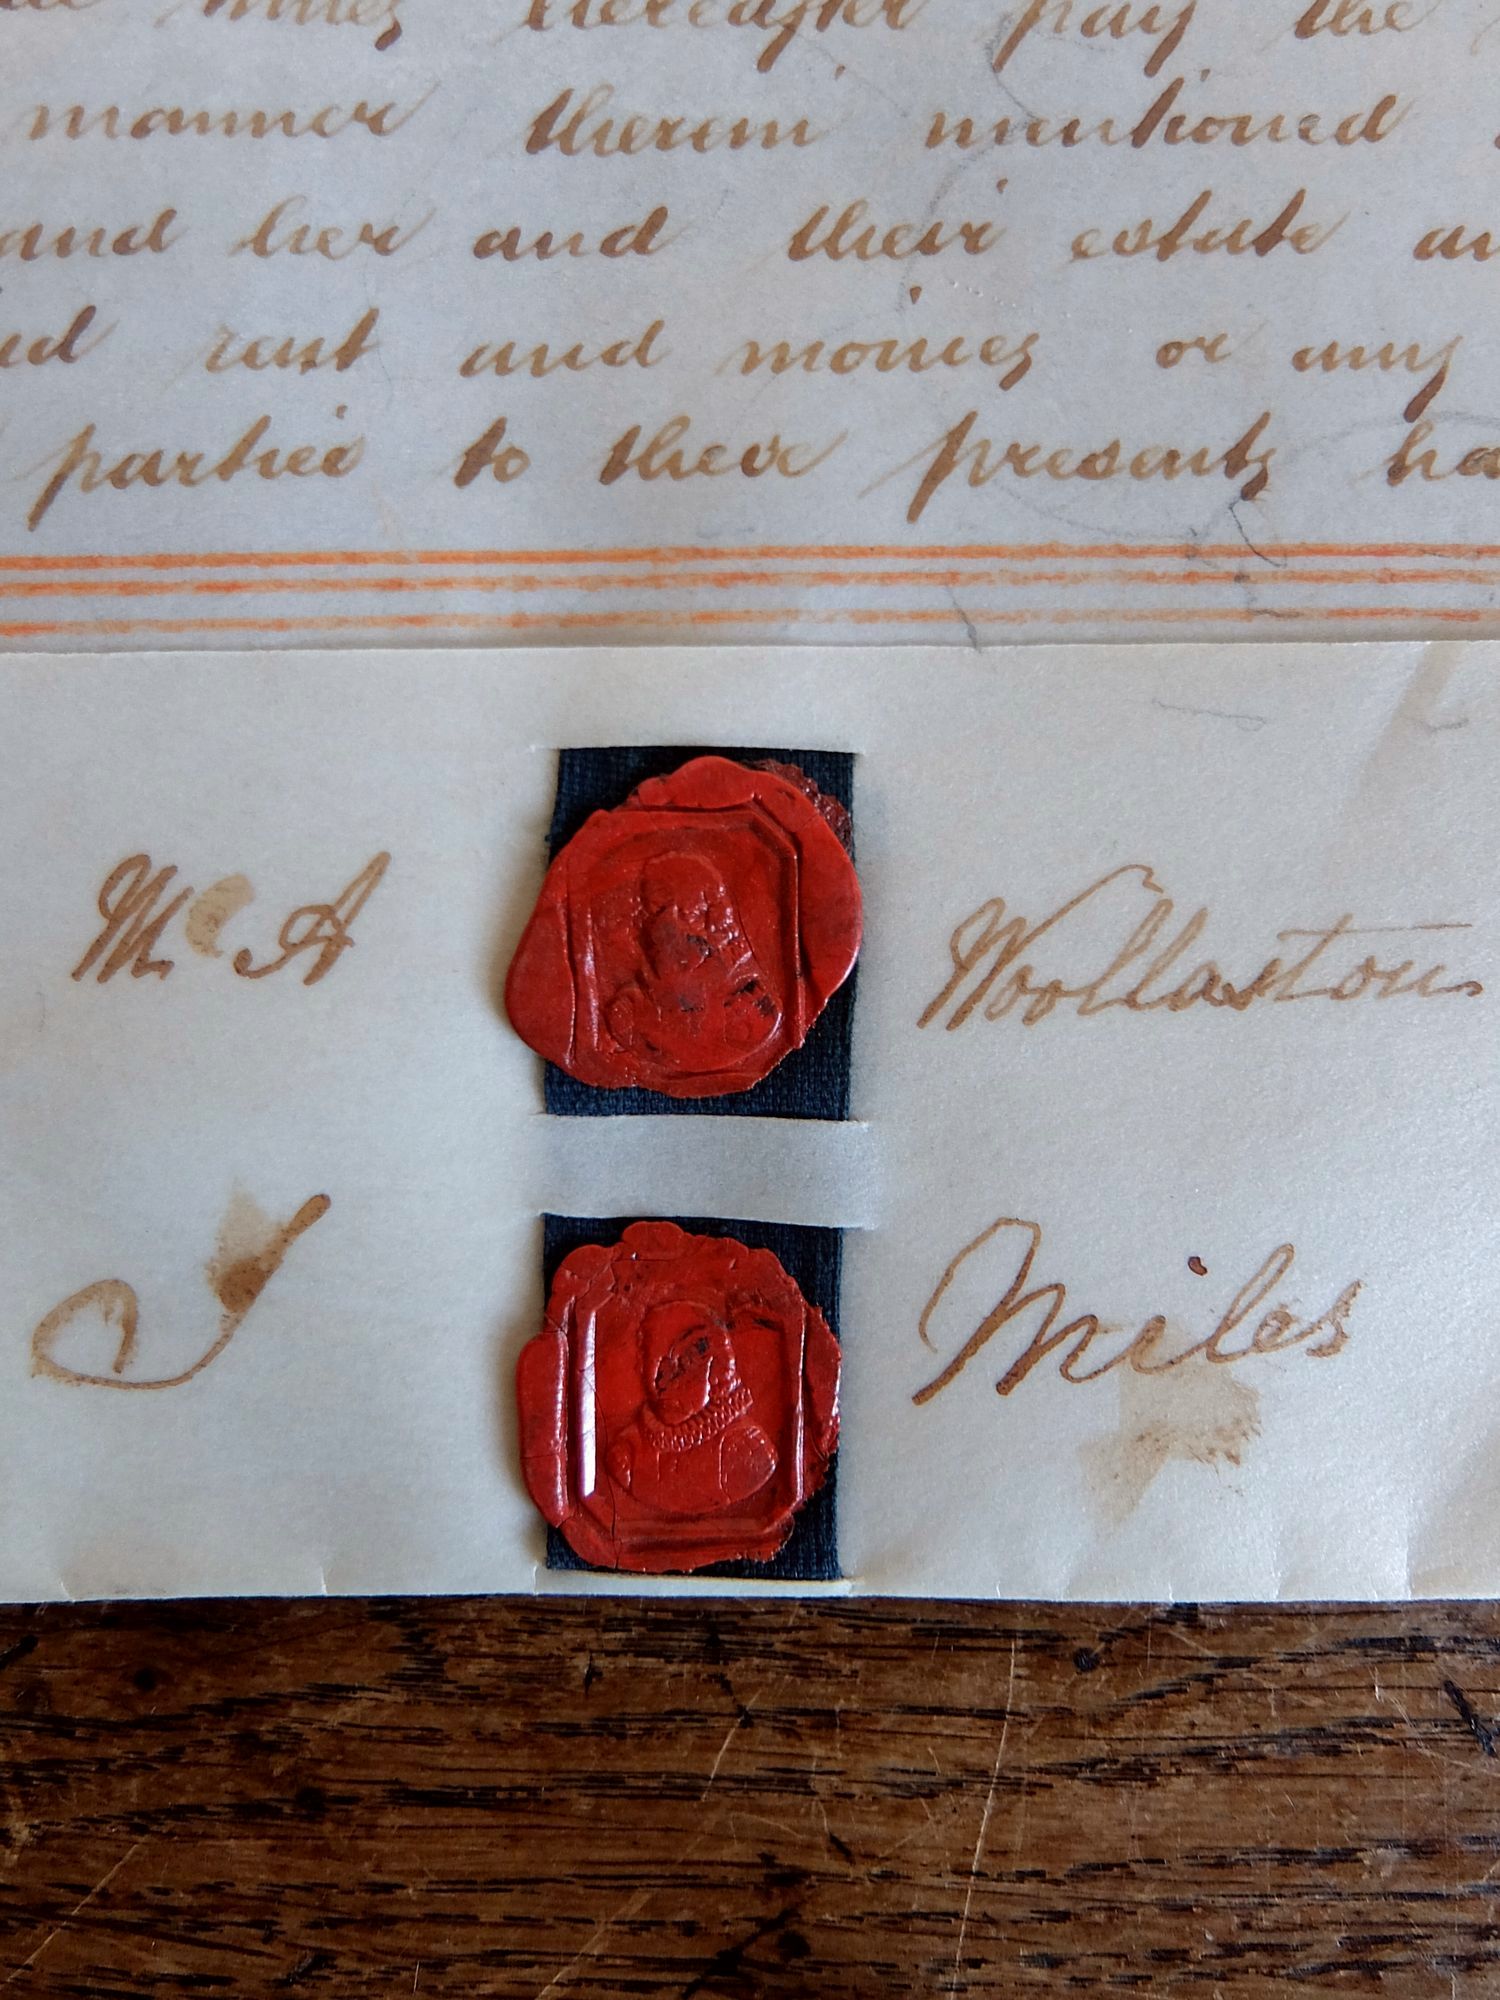 Miles hereafter pay the
manner therein mentioned
and her and their estate an
rent and monies or any
parties to these presents ha
M A Woollaston
J Miles